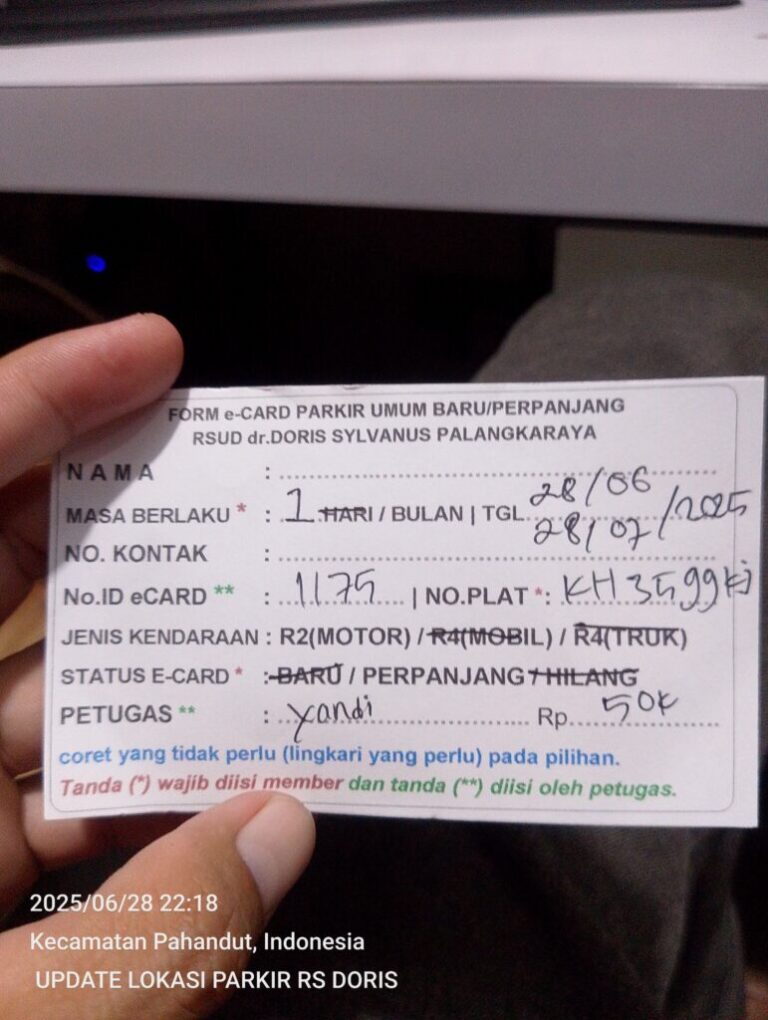 FORM e-CARD PARKIR UMUM BARU/PERPANJANG
RSUD dr.DORIS SYLVANUS PALANGKARAYA
N A M A :
MASA BERLAKU * : 1 HARI / BULAN | TGL. 28/06 28/07 /2025
NO. KONTAK :
No.ID eCARD ** : 1175 | NO.PLAT *: KH 3599 kj
JENIS KENDARAAN : R2(MOTOR) / R4(MOBIL) / R4(TRUK)
STATUS E-CARD * : BARU / PERPANJANG / HILANG
PETUGAS ** : Yandi Rp. 50K
coret yang tidak perlu (lingkari yang perlu) pada pilihan.
Tanda (*) wajib diisi member dan tanda (**) diisi oleh petugas.
2025/06/28 22:18
Kecamatan Pahandut, Indonesia
UPDATE LOKASI PARKIR RS DORIS